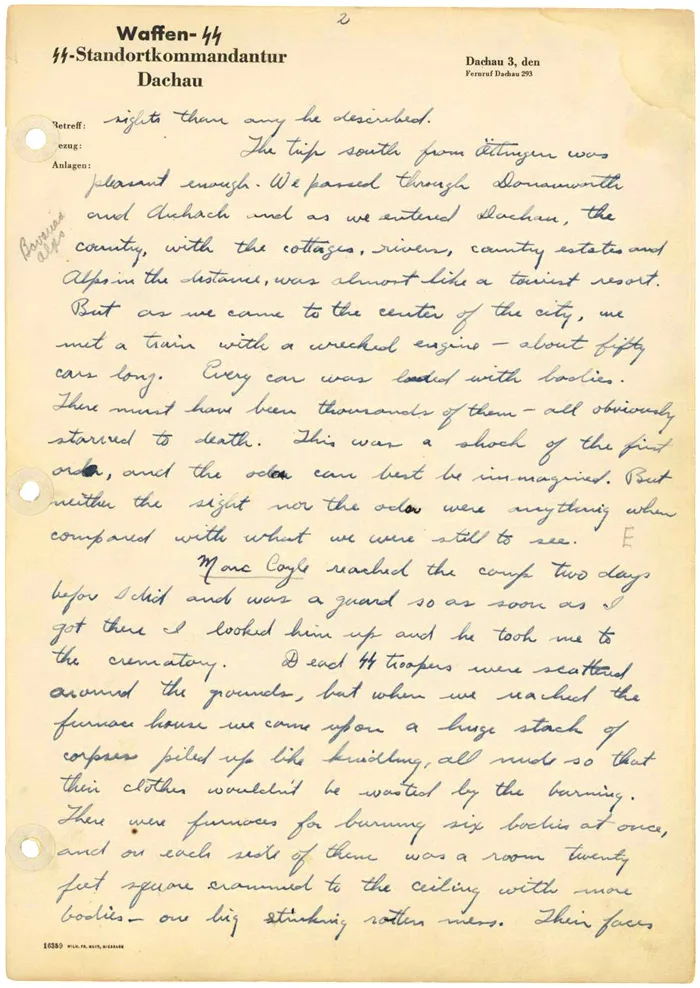 2
Waffen-SS
SS-Standortkommandantur
Dachau
Dachau 3, den
Fernruf Dachau 293
Betreff:
Bezug:
Anlagen:
sights than any he described.
The trip south from Ottingen was
pleasant enough. We passed through Donauworth
and Aichach and as we entered Dachau, the
country, with the cottages, rivers, country estates and
Bavarian
Alps
Alps in the distance, was almost like a tourist resort.
But as we came to the center of the city, we
met a train with a wrecked engine — about fifty
cars long. Every car was loaded with bodies.
There must have been thousands of them — all obviously
starved to death. This was a shock of the first
order, and the odor can best be immagined. But
neither the sight nor the odor were anything when
compared with what we were still to see. E
Marc Coyle reached the camp two days
before I did and was a guard so as soon as I
got there I looked him up and he took me to
the crematory. Dead SS troopers were scattered
around the grounds, but when we reached the
furnace house we came upon a huge stack of
corpses piled up like kindling, all nude so that
their clothes wouldn't be wasted by the burning.
There were furnaces for burning six bodies at once,
and on each side of them was a room twenty
feet square crammed to the ceiling with more
bodies — one big stinking rotten mess. Their faces
16359 WILH. FR. MAYR, MIESBACH